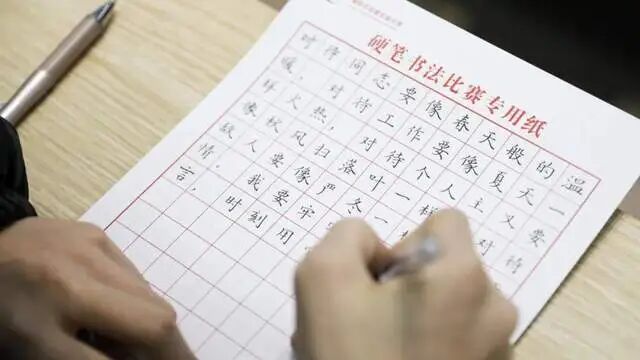 硬笔书法比赛专用纸
对待同志要像春天般的温
暖，对待工作要像夏天一
样火热，对待个人主义要
像秋风扫落叶一样 对待
敌人要像严冬一
情，我要牢
言，时刻用